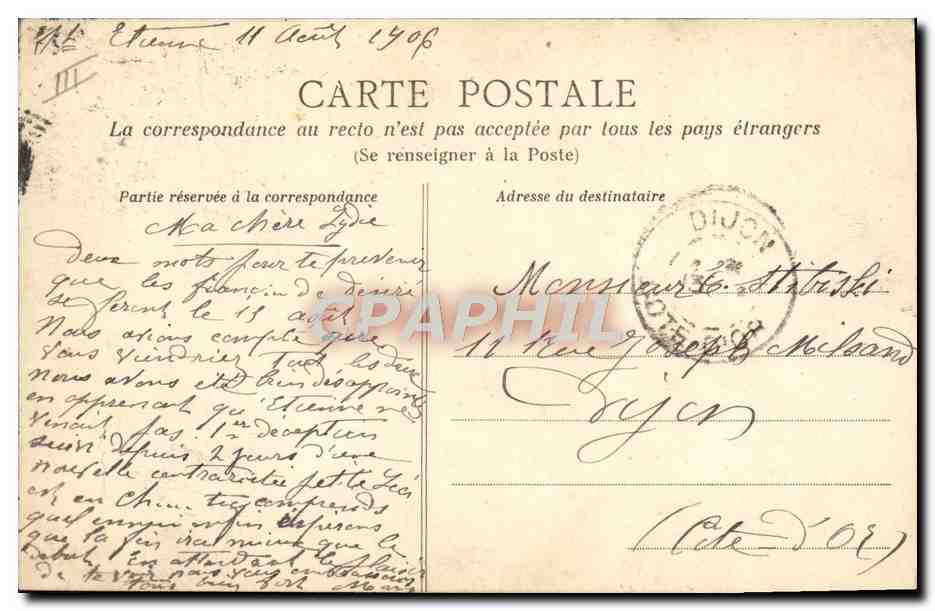 St Etienne 11 Août 1906
III
CARTE POSTALE
La correspondance au recto n'est pas acceptée par tous les pays étrangers
(Se renseigner à la Poste)
Partie réservée à la correspondance
Ma chère Lydie
Deux mots pour te prevenir
que les fianç. de désiré
se feront le 15 août
Nous avions compté que
vous viendriez tous les deux
nous avons été bien désappointés
en apprenant qu'Etienne ne
venait pas. 1er déception
suivi depuis 2 jours d'une
nouvelle contrariétée petite
est en Ch... tu comprends
quel ennui enfin espérons
que la fin ira mieux que le
début. En attendant le plaisir
de te voir nous vous embrassons
tous bien fort
Adresse du destinataire
DIJON
COTE-D'OR
Monsieur
11 Rue Joseph Milsand
Dijon
(Côte-d'Or)
CPAPHIL